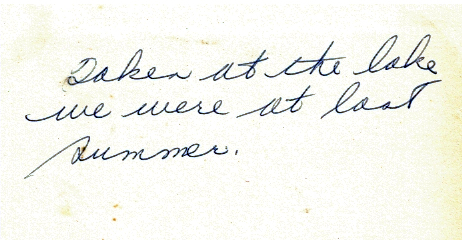 Taken at the lake
we were at last
summer.